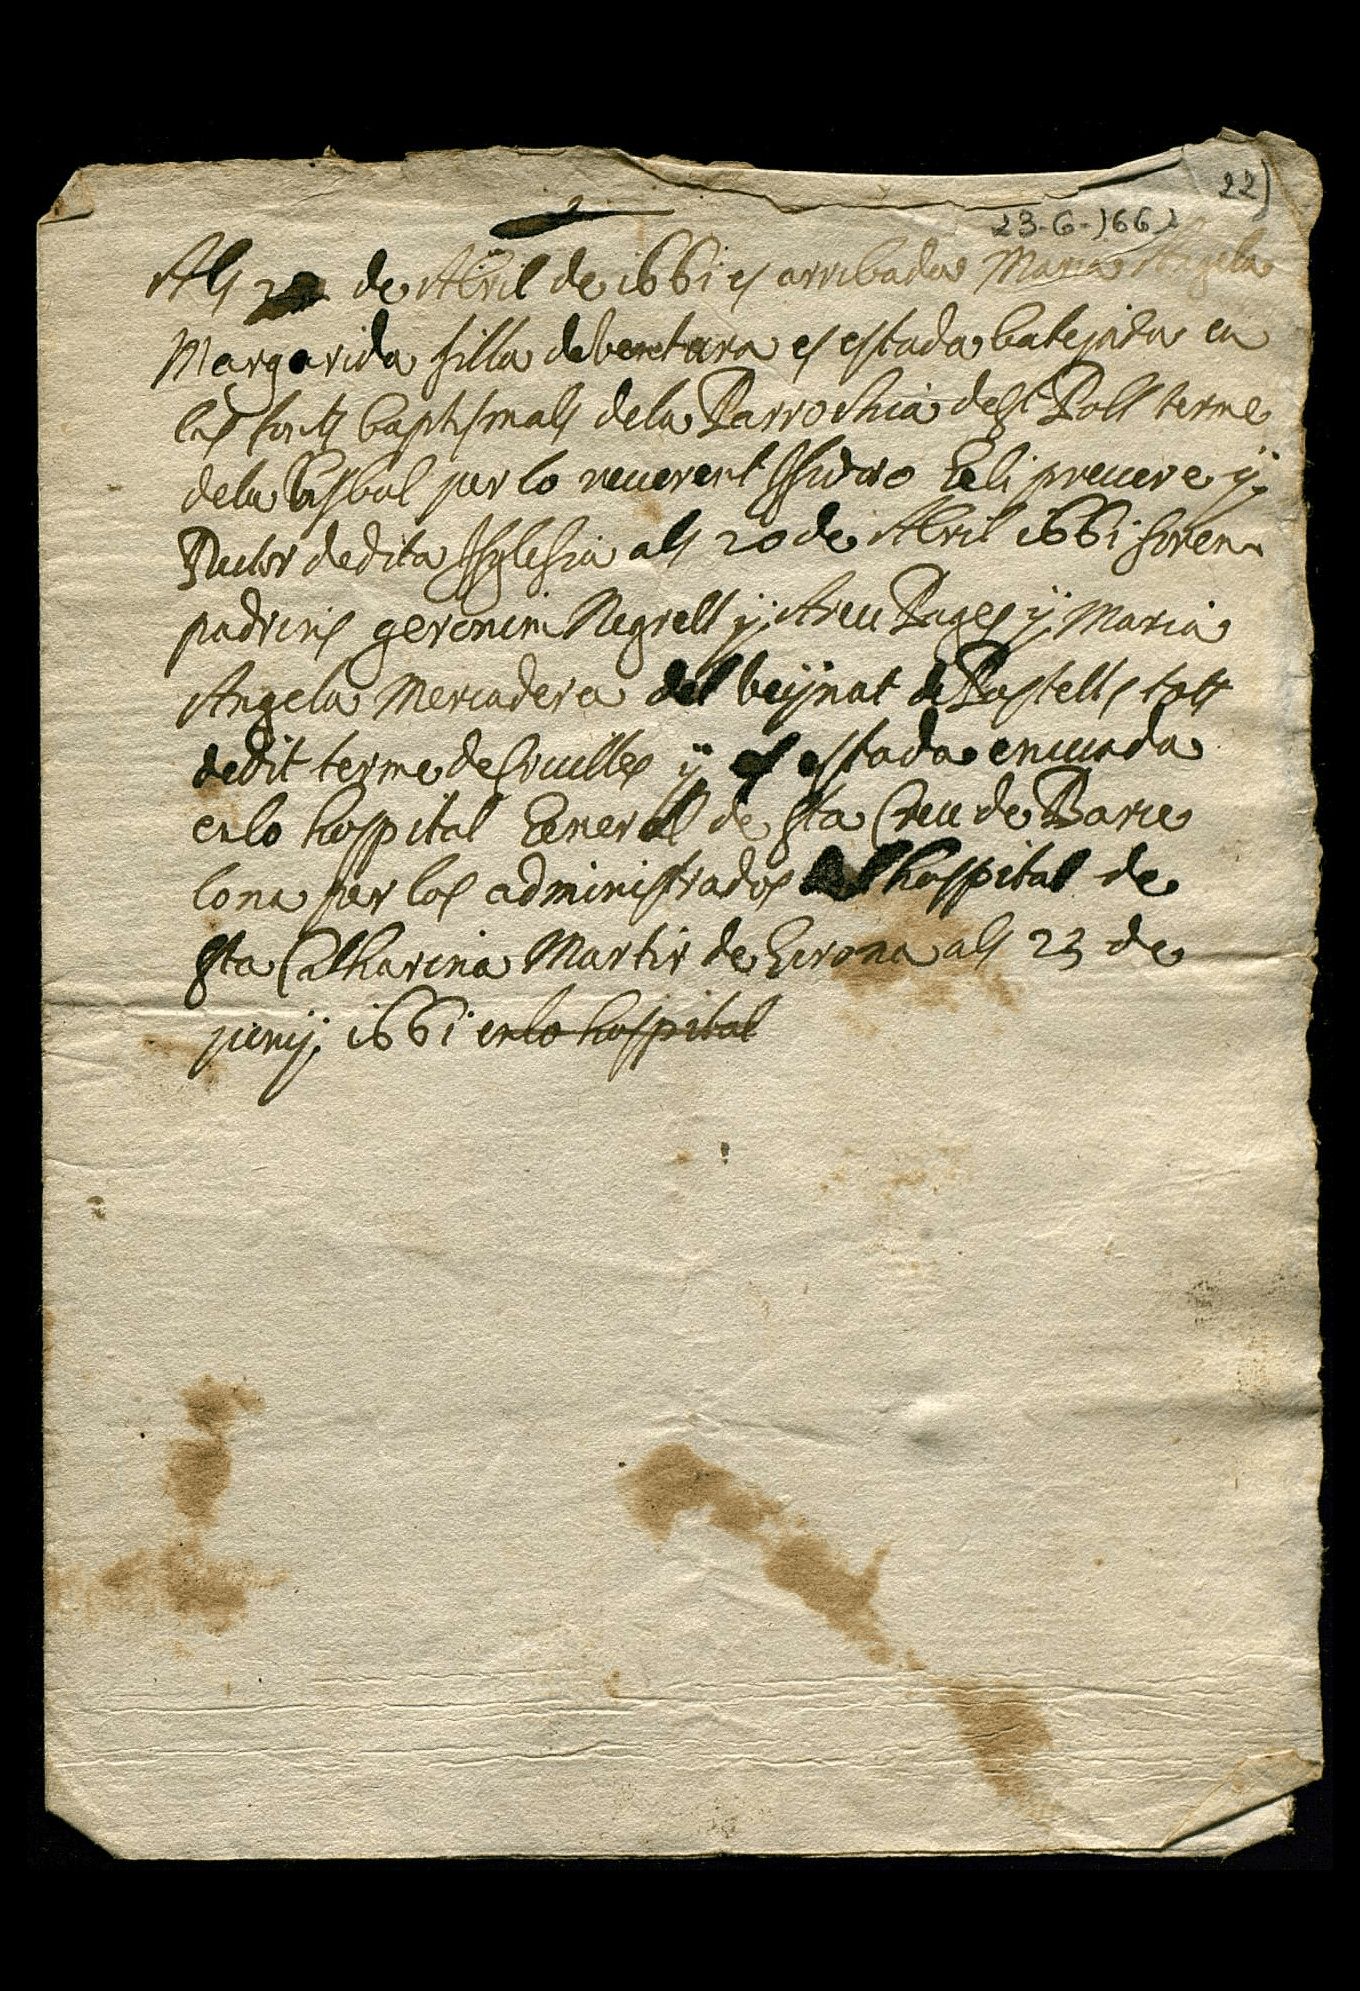 22)
23-6-1661
Als 22 de Abril de 1661 es arribada Maria Angela
Margarida filla de bentura es estada batejada en
las fonts baptismals dela Parrochia de St Poll terme
dela bisbal per lo reuerent Isidro Geli preuere ÿ
Rector dedita Isglesia als 20 de Abril 1661 foren
padrins geronim Negrell ÿ Areu Pages ÿ Maria
Angela Mercadera del beÿnat de Rastells tots
dedit terme de Cruilles ÿ es estada enuiada
enlo hospital General de sta Creu de Barce
lona per los administrados del hospital de
sta Catharina Martir de Gerona als 23 de
junÿ 1661 enlo hospital